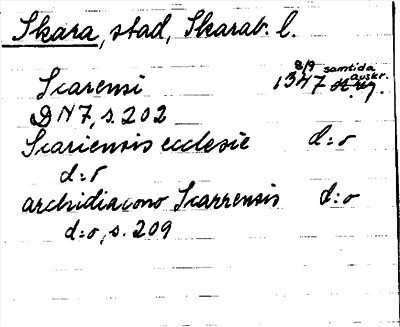 Skara, stad, Skarab. l.
Scarensi 8/9 1347 samtida auskr.
DN 7, s. 202
Scariensis ecclesie d:o
d:o
archidiacono Scarrensis d:o
d:o, s. 209